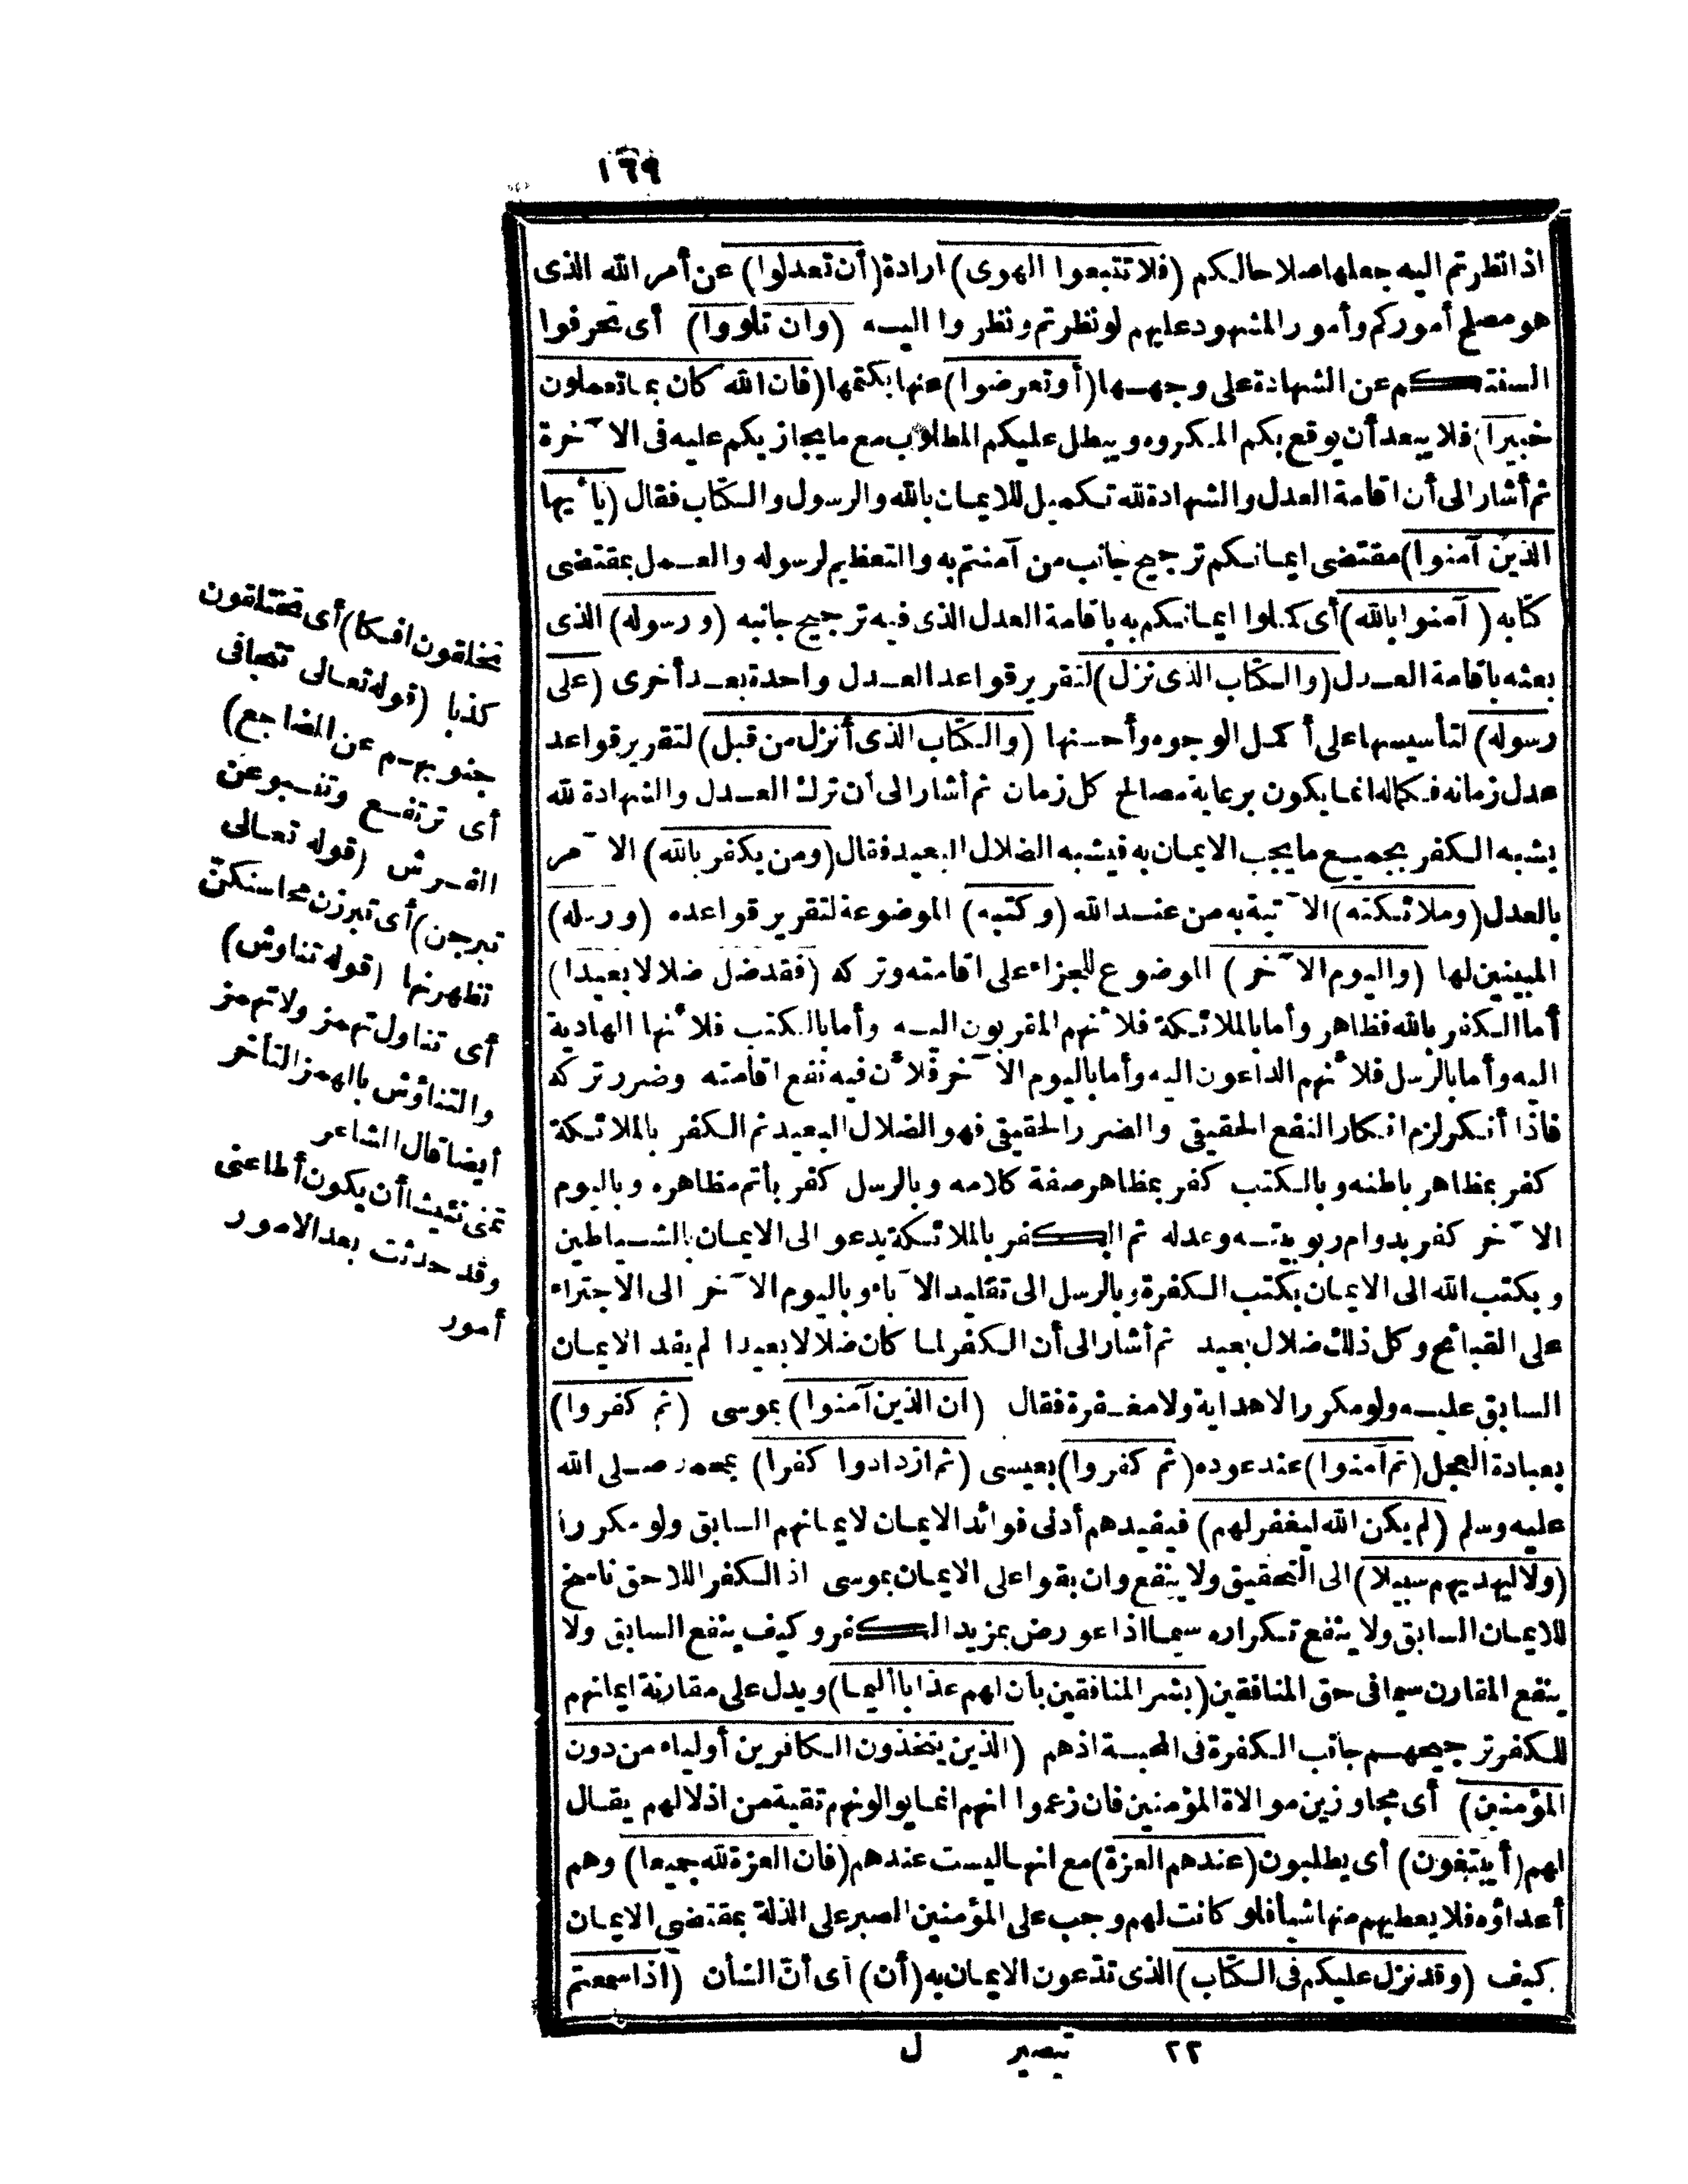 ١٦٩
اذا نظرتم اليه جعلها صلاحالكم (فلا تتبعوا الهوى) ارادة (أن تعدلوا) عن أمر الله الذى
هو مصلح أموركم وأمور المشهود عليهم لو نظرتم ونظروا اليه (وان تلووا) أى تحرفوا
السنتكم عن الشهادة على وجهها (أو تعرضوا) عنها بكتمها (فان الله كان بما تعملون
خبيرا) فلا يبعد أن يوقع بكم المكروه ويبطل عليكم المطلوب مع ما يجازيكم عليه فى الآخرة
ثم أشار الى أن اقامة العدل والشهادة لله تكميل للايمان بالله والرسول والكتاب فقال (يا أيها
الذين آمنوا) مقتضى ايمانكم ترجيح جانب من آمنتم به والتعظيم لرسوله والعمل بمقتضى
كتابه (آمنوا بالله) أى كملوا ايمانكم به باقامة العدل الذى فيه ترجيح جانبه (ورسوله) الذى
بعثه باقامة العدل (والكتاب الذى نزل) لتقرير قواعد العدل واحدة بعد أخرى (على
رسوله) لتأسيسها على أكمل الوجوه وأحسنها (والكتاب الذى أنزل من قبل) لتقرير قواعد
عدل زمانه فكماله انما يكون برعاية مصالح كل زمان ثم أشار الى أن ترك العدل والشهادة لله
يشبه الكفر بجميع ما يجب الايمان به فيشبه الضلال البعيد فقال (ومن يكفر بالله) الآمر
بالعدل (وملائكته) الآتية به من عند الله (وكتبه) الموضوعة لتقرير قواعده (ورسله)
المبينين لها (واليوم الآخر) الموضوع للجزاء على اقامته وتركه (فقد ضل ضلالا بعيدا)
أما الكفر بالله فظاهر وأما بالملائكة فلأنهم المقربون اليه وأما بالكتب فلأنها الهادية
اليه وأما بالرسل فلأنهم الداعون اليه وأما باليوم الآخر فلأن فيه نفع اقامته وضرر تركه
فاذا أنكر لزم انكار النفع الحقيقى والضرر الحقيقى فهو الضلال البعيد ثم الكفر بالملائكة
كفر بمظاهر باطنه وبالكتب كفر بمظاهر صفة كلامه وبالرسل كفر بأتم مظاهره وباليوم
الآخر كفر بدوام ربوبيته وعدله ثم الكفر بالملائكة يدعو الى الايمان بالشياطين
وبكتب الله الى الايمان بكتب الكفرة وبالرسل الى تقليد الآباء وباليوم الآخر الى الاجتراء
على القبائح وكل ذلك ضلال بعيد ثم أشار الى أن الكفر لما كان ضلالا بعيدا لم يفد الايمان
السابق عليه ولو مكررا لا هداية ولا مغفرة فقال (ان الذين آمنوا) بموسى (ثم كفروا)
بعبادة العجل (ثم آمنوا) عند عوده (ثم كفروا) بعيسى (ثم ازدادوا كفرا) بمحمد صلى الله
عليه وسلم (لم يكن الله ليغفر لهم) فيفيدهم أدنى فوائد الايمان لايمانهم السابق ولو مكررا
(ولا ليهديهم سبيلا) الى التحقيق ولا ينفع وان بقوا على الايمان بموسى اذ الكفر اللاحق ناسخ
للايمان السابق ولا ينفع تكراره سيما اذا عورض بمزيد الكفر وكيف ينفع السابق ولا
ينفع المقارن سيما فى حق المنافقين (بشر المنافقين بأن لهم عذابا أليما) ويدل على مقارنة ايمانهم
للكفر ترجيحهم جانب الكفرة فى المحبة اذهم (الذين يتخذون الكافرين أولياء من دون
المؤمنين) أى مجاوزين موالاة المؤمنين فان زعموا انهم انما يوالونهم تقية من اذلالهم يقال
لهم (أيبتغون) أى يطلبون (عندهم العزة) مع انها ليست عندهم (فان العزة لله جميعا) وهم
أعداؤه فلا يعطيهم منها شيأ فلو كانت لهم وجب على المؤمنين الصبر على الذلة بمقتضى الايمان
كيف (وقد نزل عليكم فى الكتاب) الذى تدعون الايمان به (أن) أى أن الشأن (اذا سمعتم
٢٢ تبصير ل
تخلقون افكا) أى تختلقون
كذبا (قوله تعالى تتجافى
جنوبهم عن المضاجع)
أى ترتفع وتنبو عن
الفرش (قوله تعالى
تبرجن) أى تبرزن محاسنكن
تظهرنها (قوله تناوش)
أى تناول تهمز ولا تهمز
والتناؤش بالهمز التأخر
أيضا قال الشاعر
تمنى نئيشا أن يكون أطاعنى
وقد حدثت بعد الامور
أمور